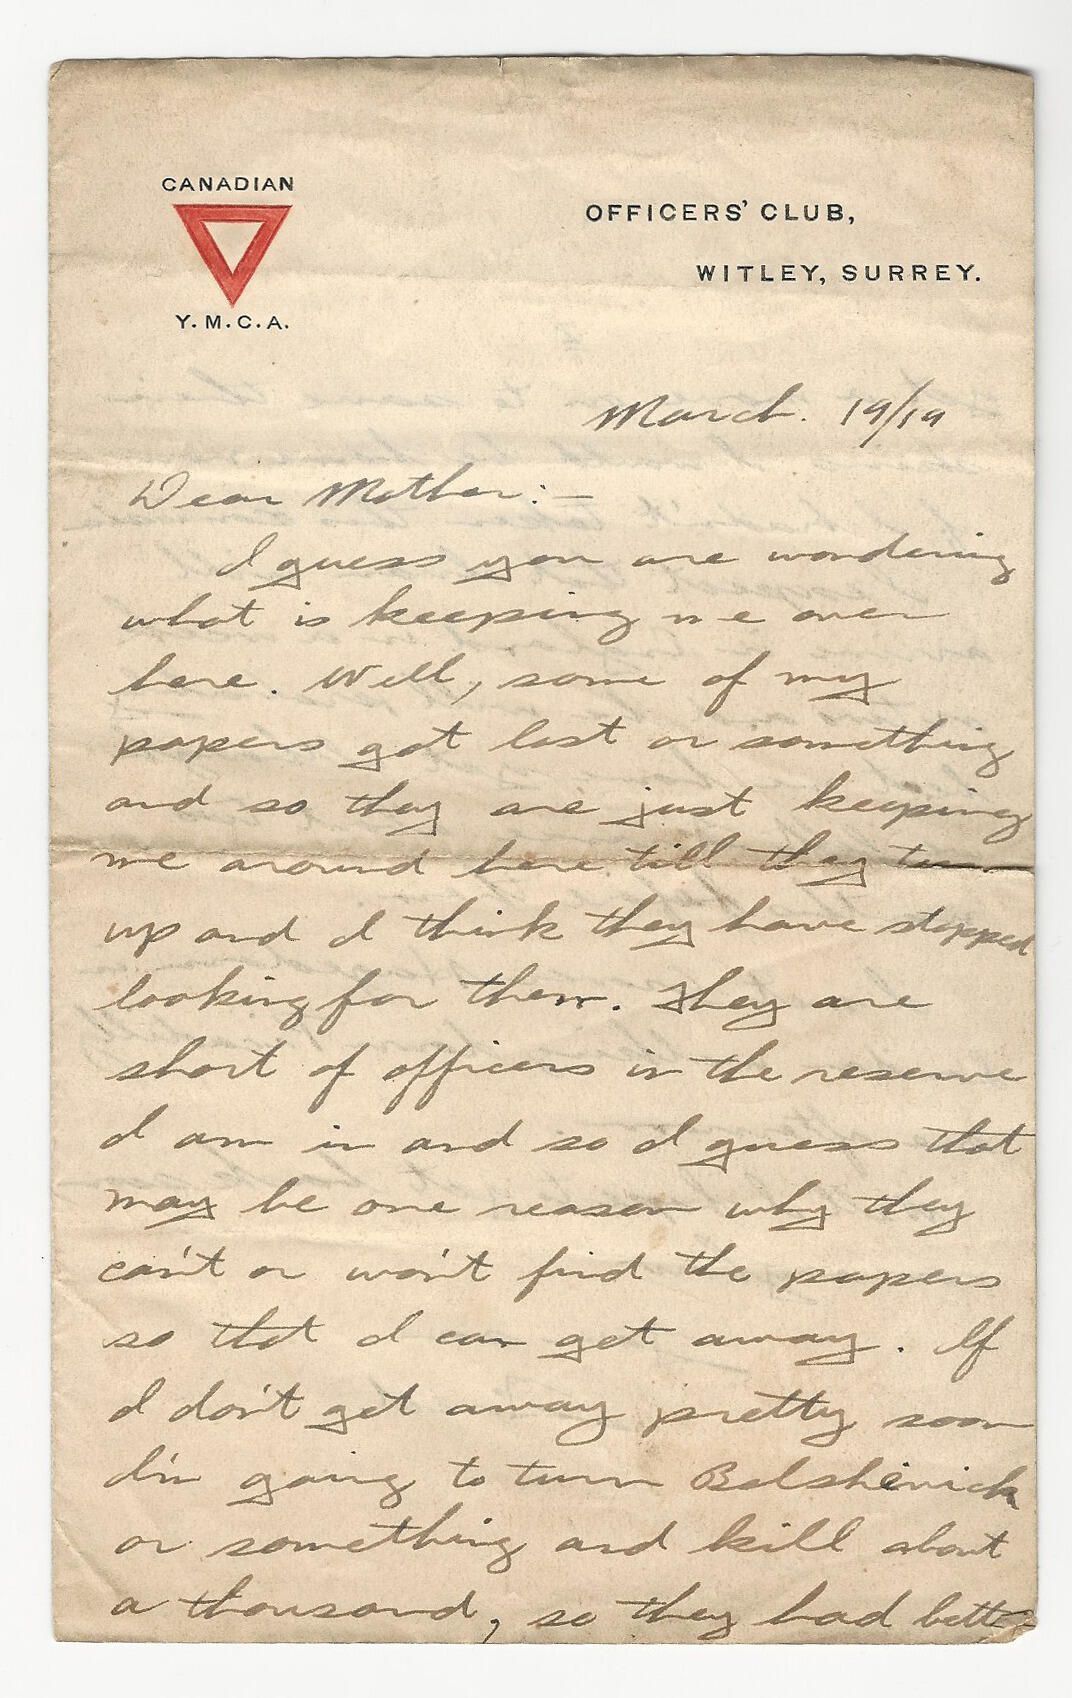 CANADIAN
Y.M.C.A.
OFFICERS' CLUB,
WITLEY, SURREY.
March. 19/19
Dear Mother:—
I guess you are wondering
what is keeping me over
here. Well, some of my
papers got lost or something
and so they are just keeping
me around here till they turn
up and I think they have stopped
looking for them. They are
short of officers in the reserve
I am in and so I guess that
may be one reason why they
can't or won't find the papers
so that I can get away. If
I don't get away pretty soon
I'm going to turn Bolshevick
or something and kill about
a thousand, so they had better